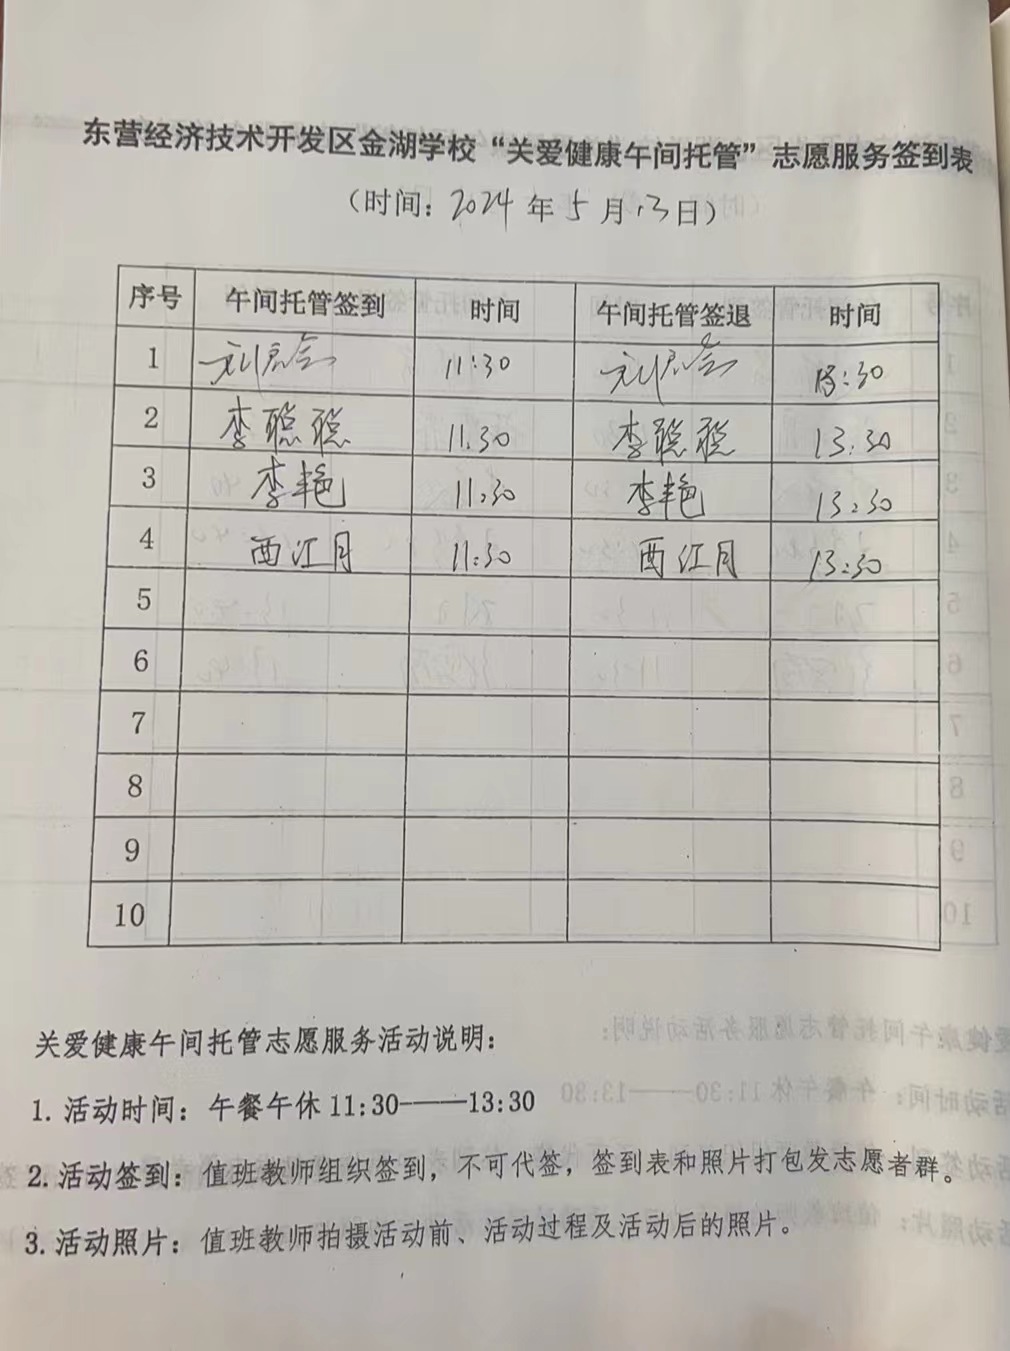 东营经济技术开发区金湖学校“关爱健康午间托管”志愿服务签到表
（时间：2024年5月13日）
序号 午间托管签到 时间 午间托管签退 时间
1 11:30 13:30
2 李聪聪 11:30 李聪聪 13:30
3 李艳 11:30 李艳 13:30
4 西江月 11:30 西江月 13:30
5
6
7
8
9
10
关爱健康午间托管志愿服务活动说明：
1. 活动时间：午餐午休11:30——13:30
2. 活动签到：值班教师组织签到，不可代签，签到表和照片打包发志愿者群。
3. 活动照片：值班教师拍摄活动前、活动过程及活动后的照片。